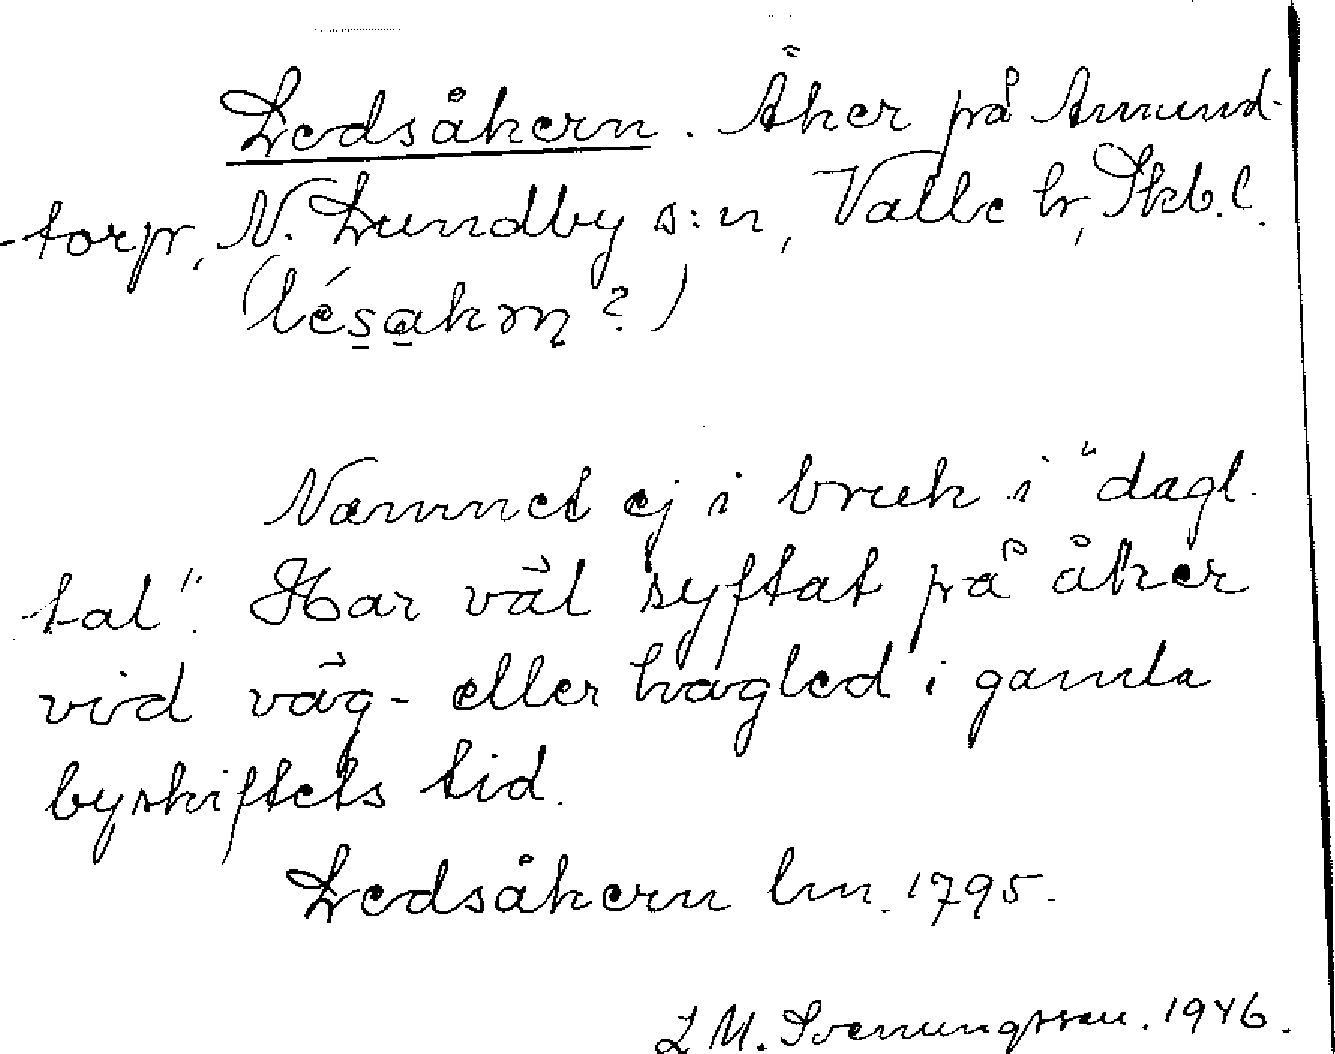 Ledsåkern. Åker på Amund-
torp, N. Lundby s:n, Valle hr, Skb.l.
(lésakrn?)
Namnet ej i bruk i "dagl.
tal". Har väl syftat på åker
vid väg- eller hagled i gamla
byskiftets tid.
Ledsåkern lm. 1795.
L M. Svenungsson. 1946.